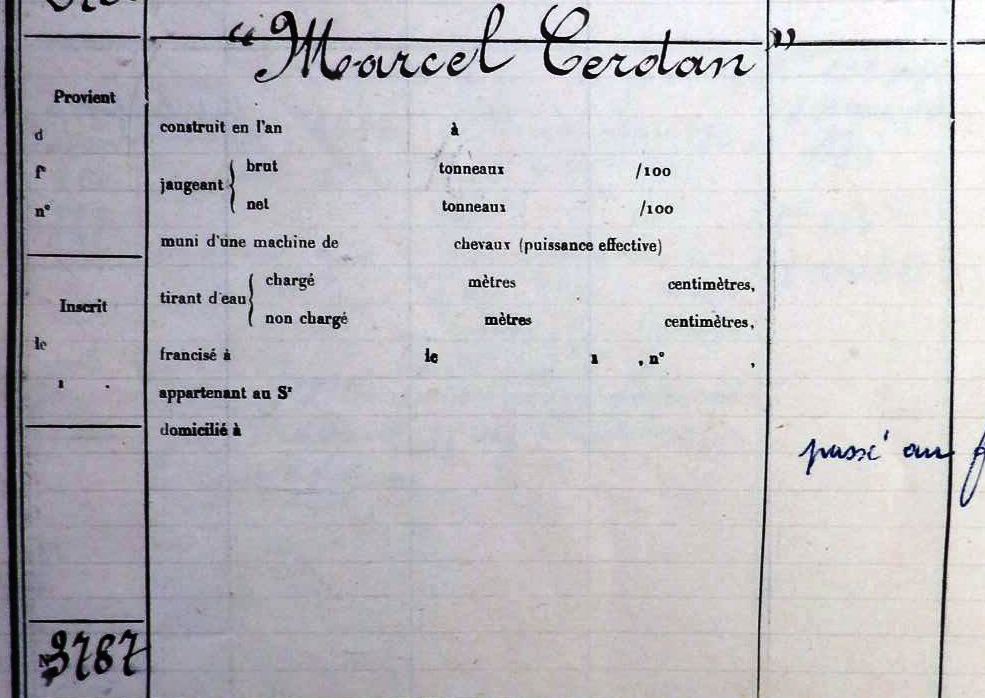 “Marcel Cerdan”
Provient
d
f°
n°
Inscrit
le
1 .
construit en l'an à
jaugeant { brut tonneaux /100
net tonneaux /100
muni d'une machine de chevaux (puissance effective)
tirant d'eau { chargé mètres centimètres,
non chargé mètres centimètres,
francisé à le 1 , n° ,
appartenant au Sr
domicilié à
passé au
N° 3787